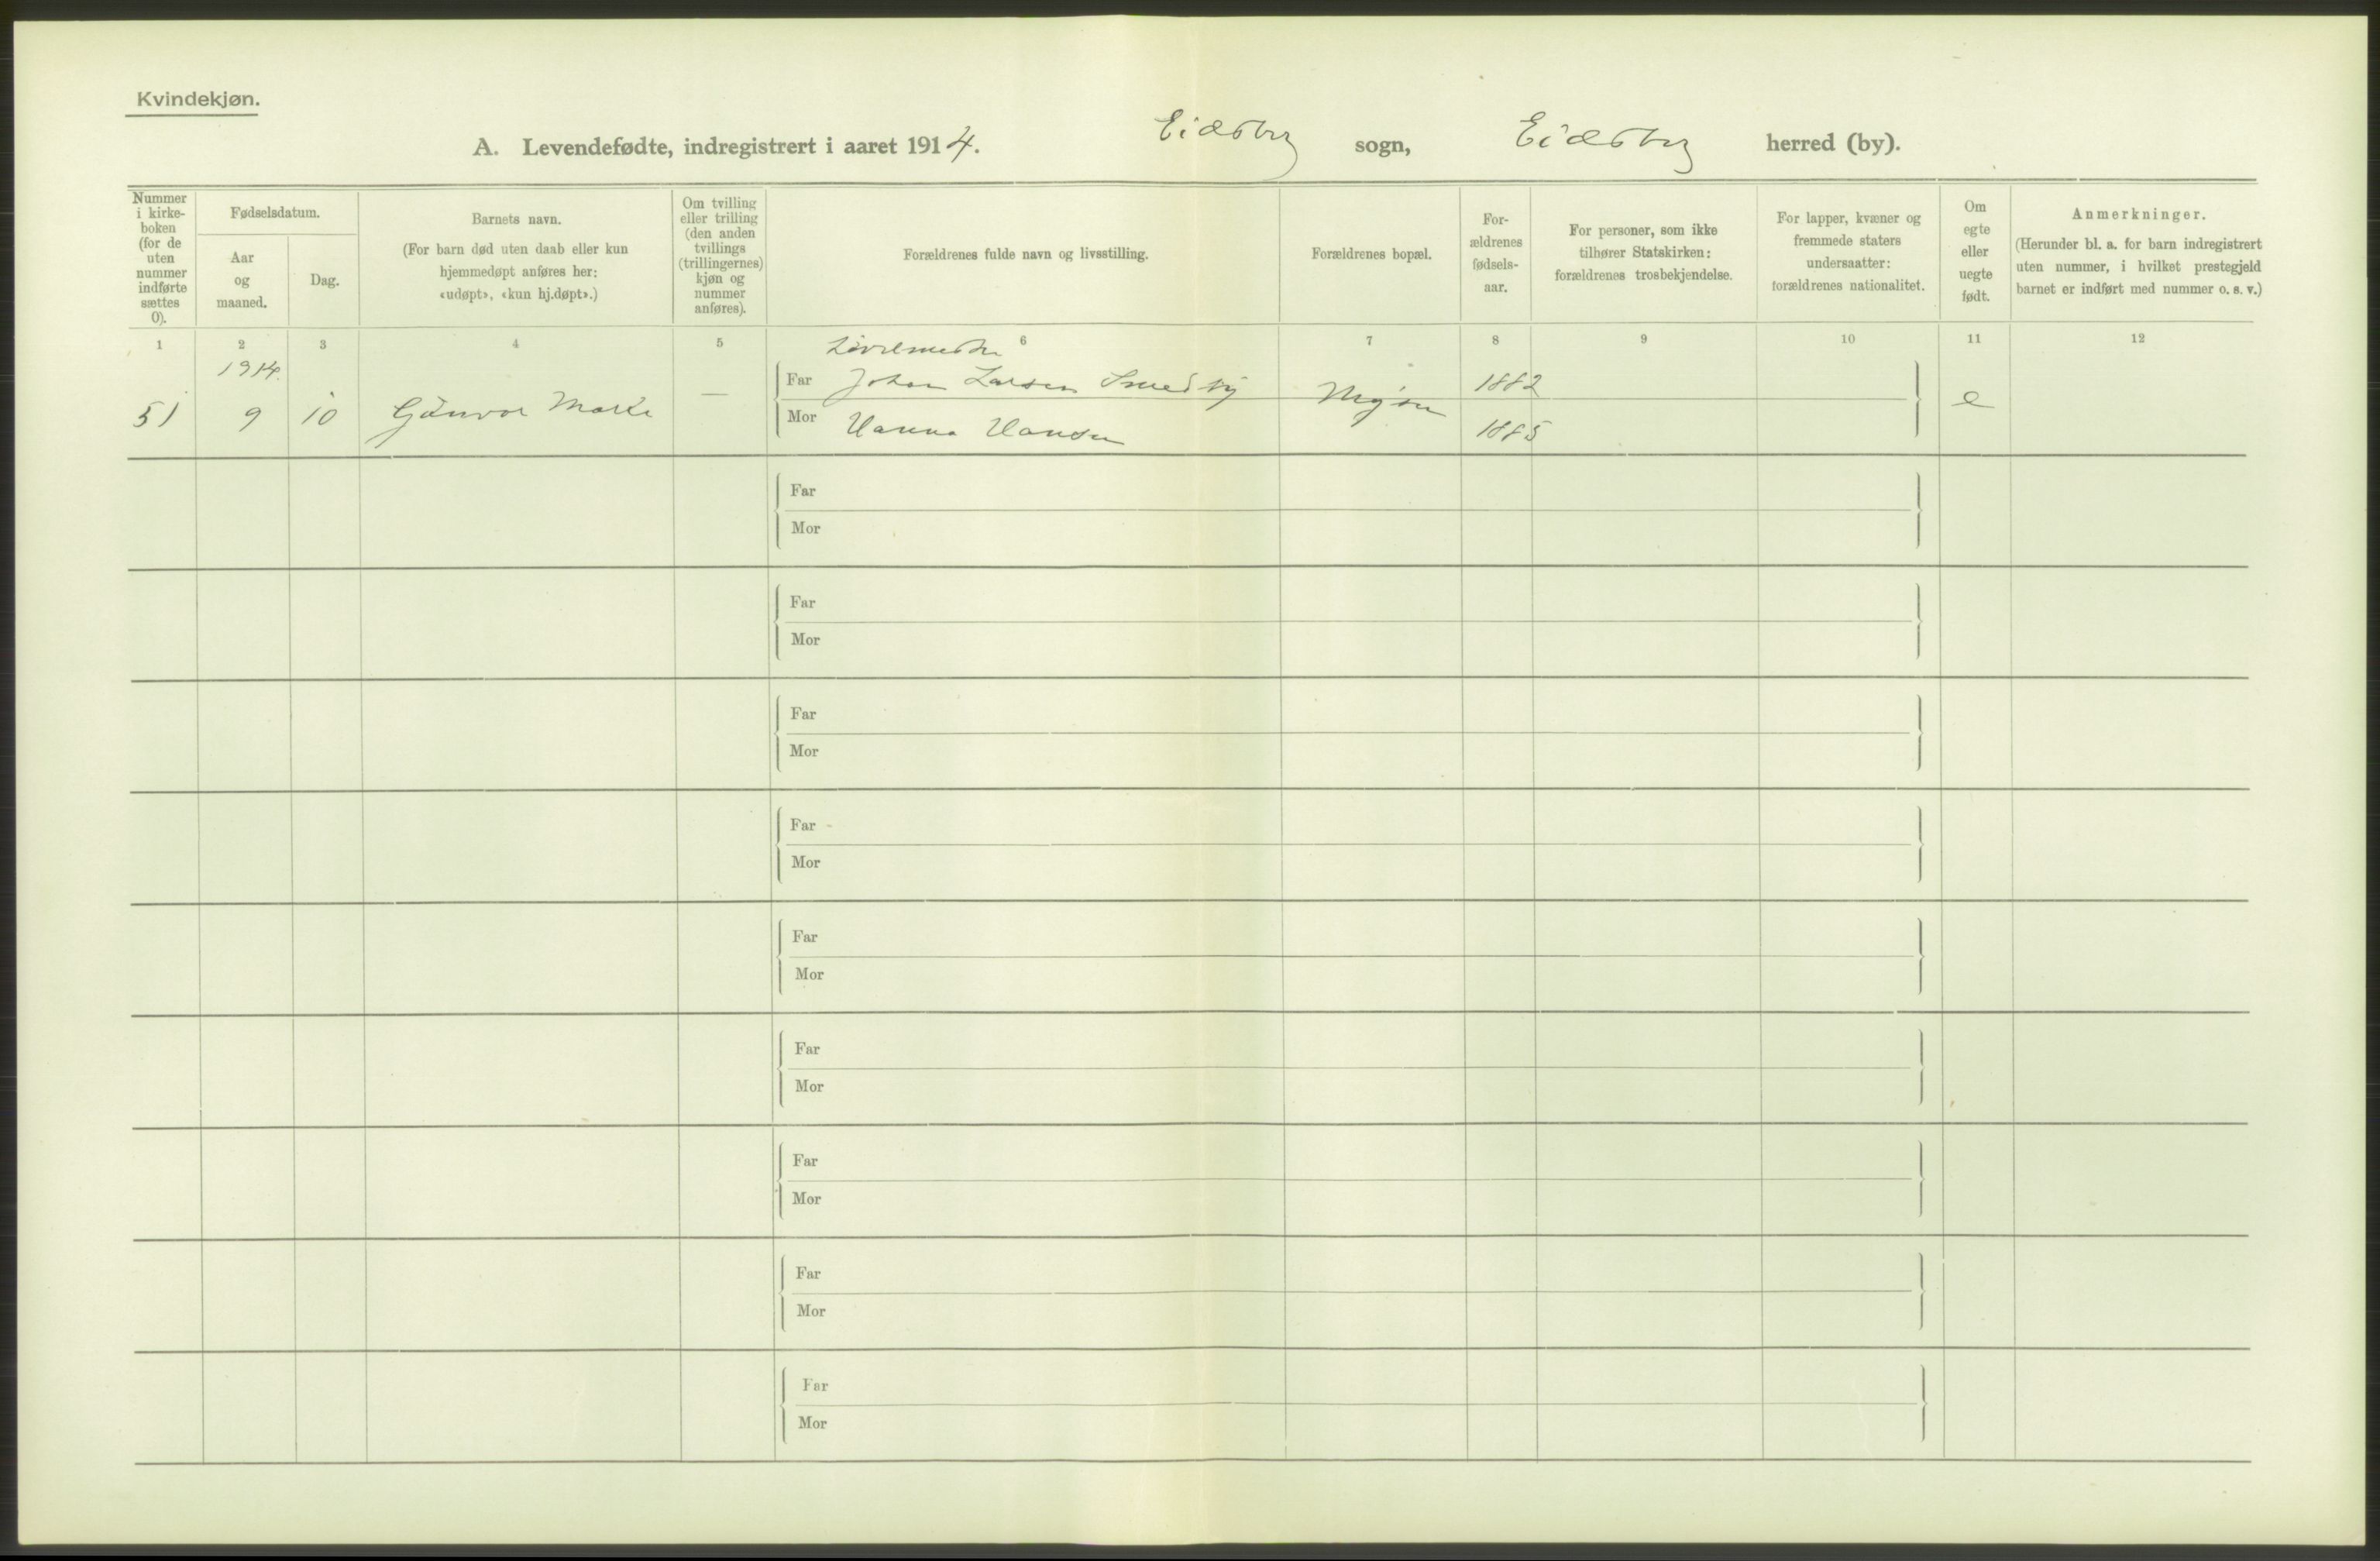 Kvindekjøn.
A. Levendefødte, indregistrert i aaret 1914. Eidsberg sogn, Eidsberg herred (by).
Nummer i kirke-
boken
(for de
uten
nummer
indførte
sættes
0).
Fødselsdatum.
Aar
og
maaned.
Dag.
Barnets navn.
(For barn død uten daab eller kun
hjemmedøpt anføres her:
«udøpt», «kun hj.døpt».)
Om tvilling
eller trilling
(den anden
tvillings
(trillingernes)
kjøn og
nummer
anføres).
Forældrenes fulde navn og livsstilling.
Forældrenes bopæl.
For-
ældrenes
fødsels-
aar.
For personer, som ikke
tilhører Statskirken:
forældrenes trosbekjendelse.
For lapper, kvæner og
fremmede staters
undersaatter:
forældrenes nationalitet.
Om
egte
eller
uegte
født.
Anmerkninger.
(Herunder bl. a. for barn indregistrert
uten nummer, i hvilket prestegjeld
barnet er indført med nummer o. s. v.)
1 2 3 4 5 6 7 8 9 10 11 12
1914.
51 9 10 Gunvor Marie —
Far Johan Larsen Smedby Mysen 1882 e
Mor Hanna Hansen 1885
Far
Mor
Far
Mor
Far
Mor
Far
Mor
Far
Mor
Far
Mor
Far
Mor
Far
Mor
Far
Mor